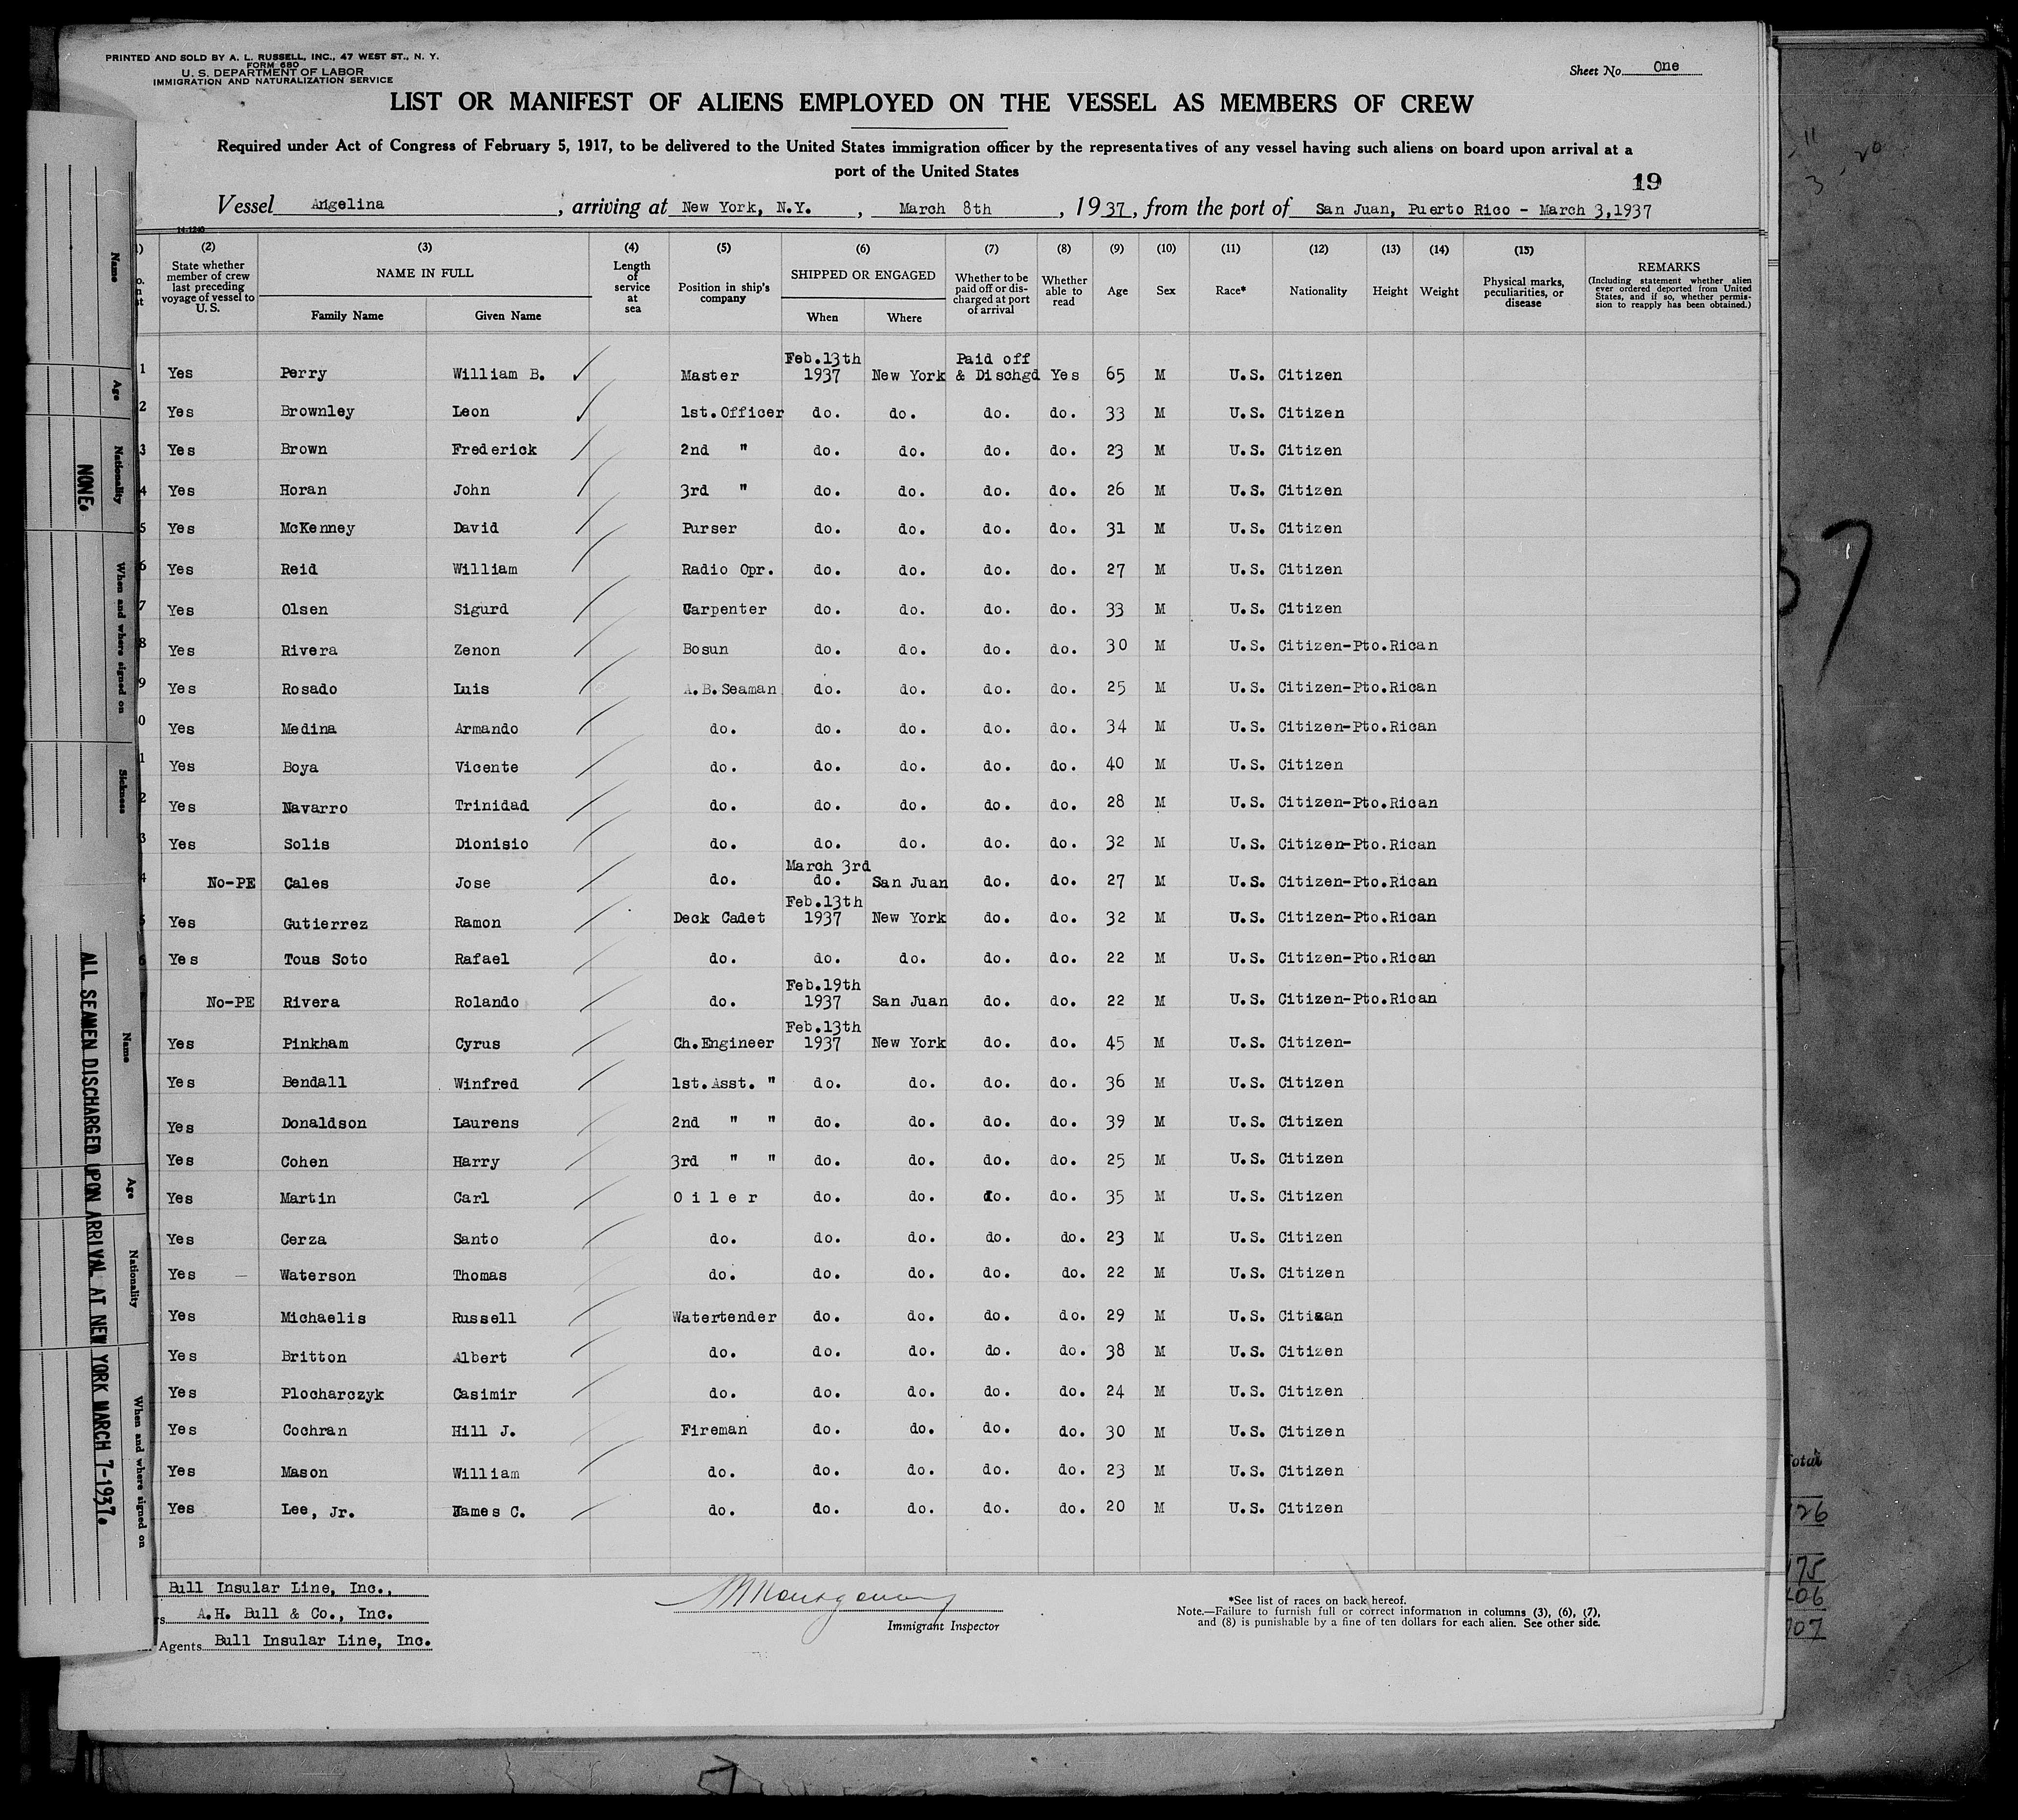 PRINTED AND SOLD BY A. L. RUSSELL, INC., 47 WEST ST., N. Y.
FORM 680
U. S. DEPARTMENT OF LABOR
IMMIGRATION AND NATURALIZATION SERVICE
Sheet No. One
LIST OR MANIFEST OF ALIENS EMPLOYED ON THE VESSEL AS MEMBERS OF CREW
Required under Act of Congress of February 5, 1917, to be delivered to the United States immigration officer by the representatives of any vessel having such aliens on board upon arrival at a
port of the United States
19
Vessel Angelina, arriving at New York, N.Y., March 8th, 1937, from the port of San Juan, Puerto Rico - March 3,1937
14-1240
(2) (3) (4) (5) (6) (7) (8) (9) (10) (11) (12) (13) (14) (15)
State whether member of crew last preceding voyage of vessel to U. S. NAME IN FULL Family Name Given Name Length of service at sea Position in ship's company SHIPPED OR ENGAGED When Where Whether to be paid off or discharged at port of arrival Whether able to read Age Sex Race* Nationality Height Weight Physical marks, peculiarities, or disease REMARKS (Including statement whether alien ever ordered deported from United States, and if so, whether permission to reapply has been obtained.)
1 Yes Perry William B. ✓ Master Feb.13th 1937 New York Paid off & Dischgd Yes 65 M U.S. Citizen
2 Yes Brownley Leon ✓ 1st.Officer do. do. do. do. 33 M U.S. Citizen
3 Yes Brown Frederick 2nd " do. do. do. do. 23 M U.S. Citizen
4 Yes Horan John 3rd " do. do. do. do. 26 M U.S. Citizen
5 Yes McKenney David Purser do. do. do. do. 31 M U.S. Citizen
6 Yes Reid William Radio Opr. do. do. do. do. 27 M U.S. Citizen
7 Yes Olsen Sigurd Carpenter do. do. do. do. 33 M U.S. Citizen
8 Yes Rivera Zenon Bosun do. do. do. do. 30 M U.S. Citizen-Pto.Rican
9 Yes Rosado Luis A.B.Seaman do. do. do. do. 25 M U.S. Citizen-Pto.Rican
0 Yes Medina Armando do. do. do. do. do. 34 M U.S. Citizen-Pto.Rican
1 Yes Boya Vicente do. do. do. do. do. 40 M U.S. Citizen
2 Yes Navarro Trinidad do. do. do. do. do. 28 M U.S. Citizen-Pto.Rican
3 Yes Solis Dionisio do. do. do. do. do. 32 M U.S. Citizen-Pto.Rican
4 No-PE Cales Jose do. March 3rd do. San Juan do. do. 27 M U.S. Citizen-Pto.Rican
5 Yes Gutierrez Ramon Deck Cadet Feb.13th 1937 New York do. do. 32 M U.S. Citizen-Pto.Rican
6 Yes Tous Soto Rafael do. do. do. do. do. 22 M U.S. Citizen-Pto.Rican
No-PE Rivera Rolando do. Feb.19th 1937 San Juan do. do. 22 M U.S. Citizen-Pto.Rican
Yes Pinkham Cyrus Ch.Engineer Feb.13th 1937 New York do. do. 45 M U.S. Citizen-
Yes Bendall Winfred 1st.Asst. " do. do. do. do. 36 M U.S. Citizen
Yes Donaldson Laurens 2nd " " do. do. do. do. 39 M U.S. Citizen
Yes Cohen Harry 3rd " " do. do. do. do. 25 M U.S. Citizen
Yes Martin Carl Oiler do. do. do. do. 35 M U.S. Citizen
Yes Cerza Santo do. do. do. do. do. 23 M U.S. Citizen
Yes — Waterson Thomas do. do. do. do. do. 22 M U.S. Citizen
Yes Michaelis Russell Watertender do. do. do. do. 29 M U.S. Citizan
Yes Britton Albert do. do. do. do. do. 38 M U.S. Citizen
Yes Plocharczyk Casimir do. do. do. do. do. 24 M U.S. Citizen
Yes Cochran Hill J. Fireman do. do. do. do. 30 M U.S. Citizen
Yes Mason William do. do. do. do. do. 23 M U.S. Citizen
Yes Lee, Jr. James C. do. do. do. do. do. 20 M U.S. Citizen
Bull Insular Line, Inc.,
A.H. Bull & Co., Inc.
Agents Bull Insular Line, Inc.
Immigrant Inspector
*See list of races on back hereof.
Note.—Failure to furnish full or correct information in columns (3), (6), (7),
and (8) is punishable by a fine of ten dollars for each alien. See other side.
Name Age Nationality When and where signed on Sickness
NONE.
Name Age Nationality When and where signed on
ALL SEAMEN DISCHARGED UPON ARRIVAL AT NEW YORK MARCH 7-1937.
7
otal
126
175
406
707